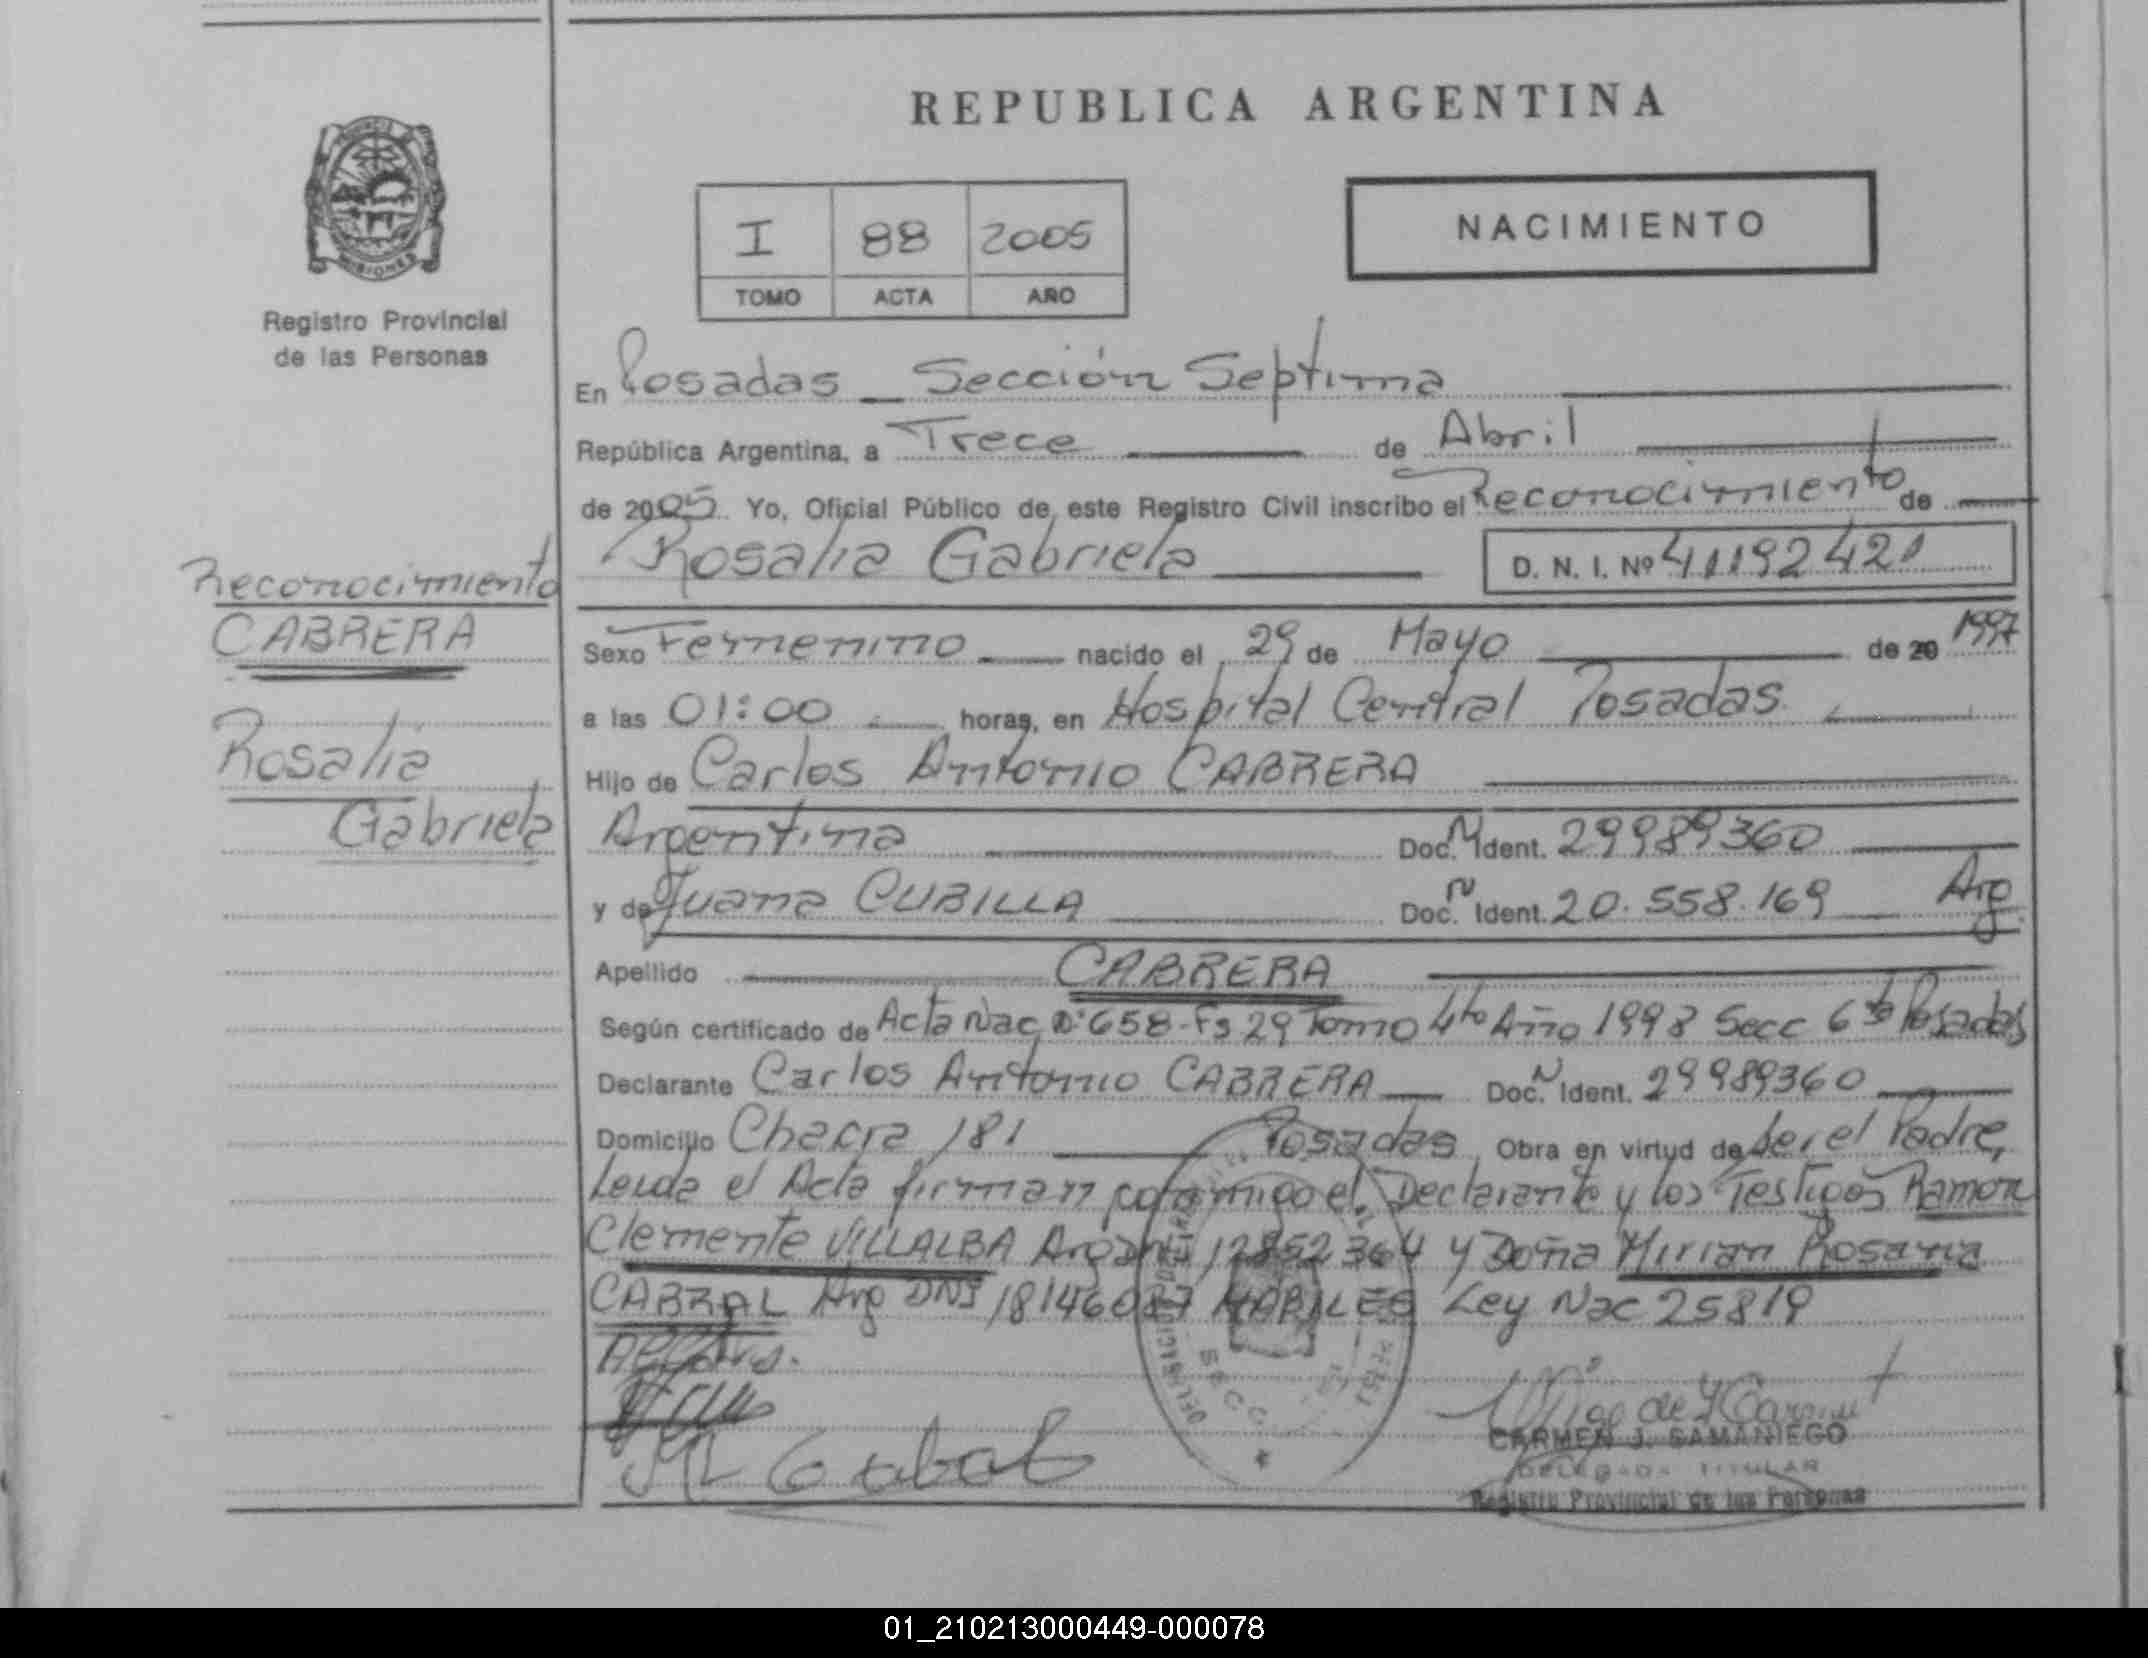 REPUBLICA ARGENTINA
I 88 2005
TOMO ACTA AÑO
NACIMIENTO
MISIONES
Registro Provincial
de las Personas
En Posadas - Sección Septima
República Argentina, a Trece de Abril
de 2005 Yo, Oficial Público de este Registro Civil inscribo el Reconocimiento de
Rosalia Gabriela D. N. I. Nº 41192421
Reconocimiento
CABRERA
Rosalia
Gabriela
Sexo Femenino nacido el 29 de Mayo de 20 1997
a las 01:00 horas, en Hospital Central Posadas
Hijo de Carlos Antonio CABRERA
Argentina Doc. N Ident. 29989360
y de Juana CUBILLA Doc. N Ident. 20.558.169 Arg
Apellido CABRERA
Según certificado de Acta Nac Nº 658-Fs 29 Tomo 4to Año 1998 Secc 6ta Posadas
Declarante Carlos Antonio CABRERA Doc. N Ident. 29989360
Domicilio Chacra 181 Posadas Obra en virtud de Ser el Padre,
Leida el Acta firman conmigo el Declarante y los Testigos Ramon
Clemente VILLALBA Arg DNI 12852364 y Doña Mirian Rosana
CABRAL Arg DNI 18146087 HABILES Ley Nac 25819
CARMEN J. SAMANIEGO
DELEGADA TITULAR
Registro Provincial de las Personas
01_210213000449-000078